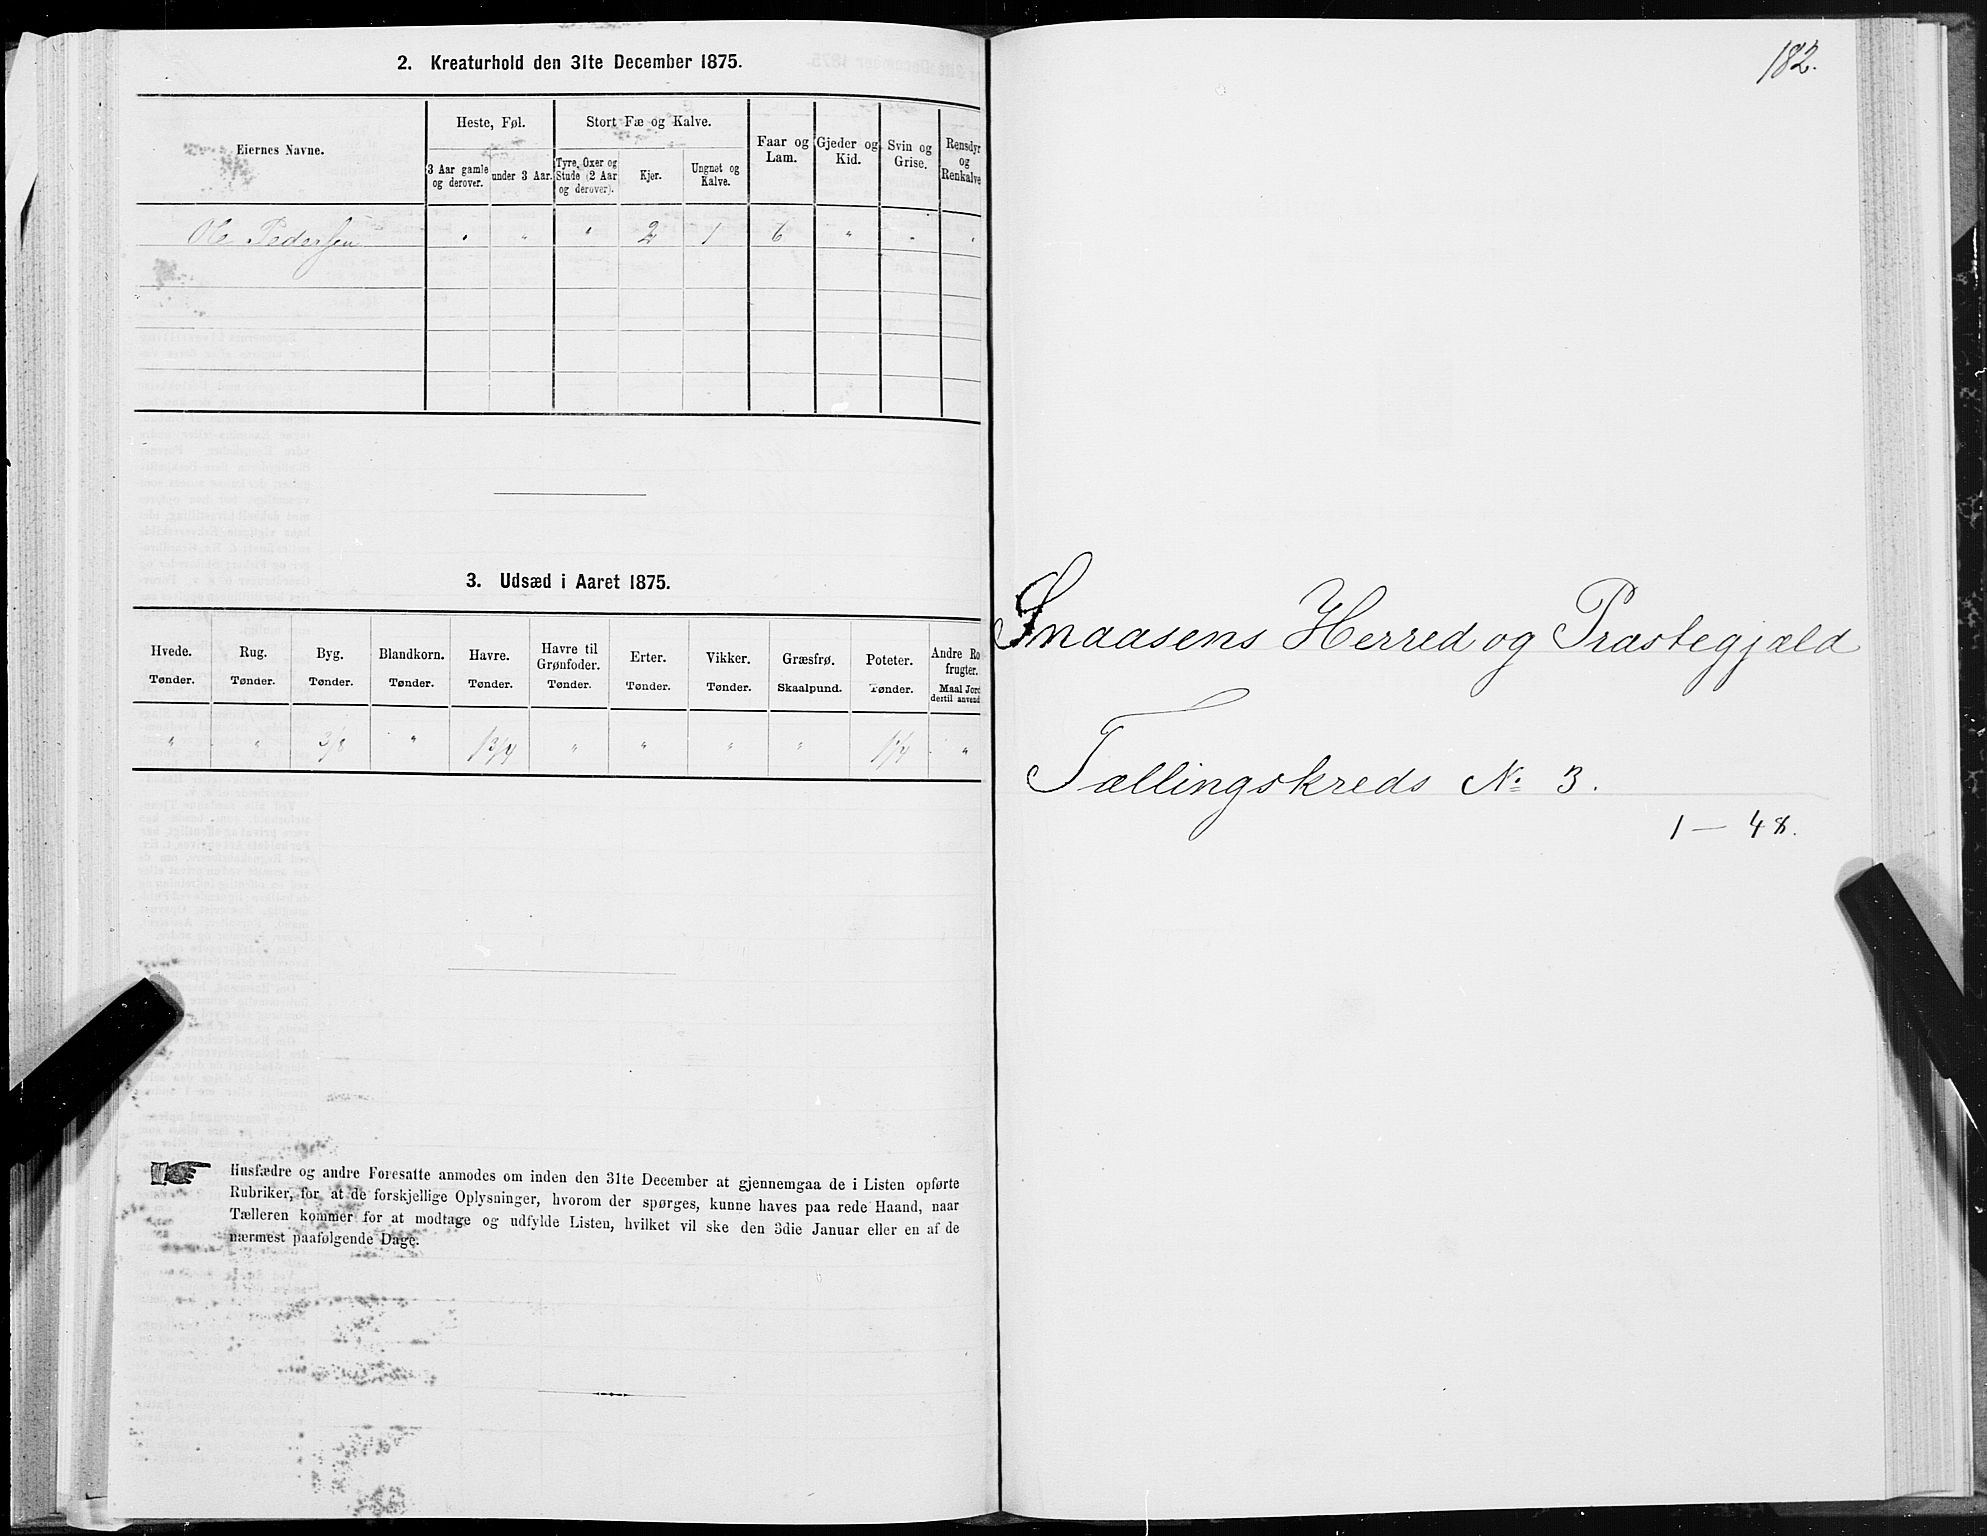 2. Kreaturhold den 31te December 1875.
Eiernes Navne.
Heste, Føl.
Stort Fæ og Kalve.
Faar og Lam.
Gjeder og Kid.
Svin og Grise.
Rensdyr og Renkalve
3 Aar gamle og derover.
under 3 Aar.
Tyre, Oxer og Stude (2 Aar og derover).
Kjør.
Ungnøt og Kalve.
Ole Pedersen " " " 2 1 6 " " "
3. Udsæd i Aaret 1875.
Hvede. Rug. Byg. Blandkorn. Havre. Havre til Grønfoder. Erter. Vikker. Græsfrø. Poteter. Andre Ro frugter.
Tønder. Tønder. Tønder. Tønder. Tønder. Tønder. Tønder. Tønder. Skaalpund. Tønder. Maal Jord dertil anvend
" " 3/8 " 1 3/4 " " " " 1 1/4 "
Husfædre og andre Foresatte anmodes om inden den 31te December at gjennemgaa de i Listen opførte
Rubriker, for at de forskjellige Oplysninger, hvorom der spørges, kunne haves paa rede Haand, naar
Tælleren kommer for at modtage og udfylde Listen, hvilket vil ske den 3die Januar eller en af de
nærmest paafølgende Dage.
182.
Snaasens Herred og Præstegjæld
Tællingskreds No 3.
1 — 48.